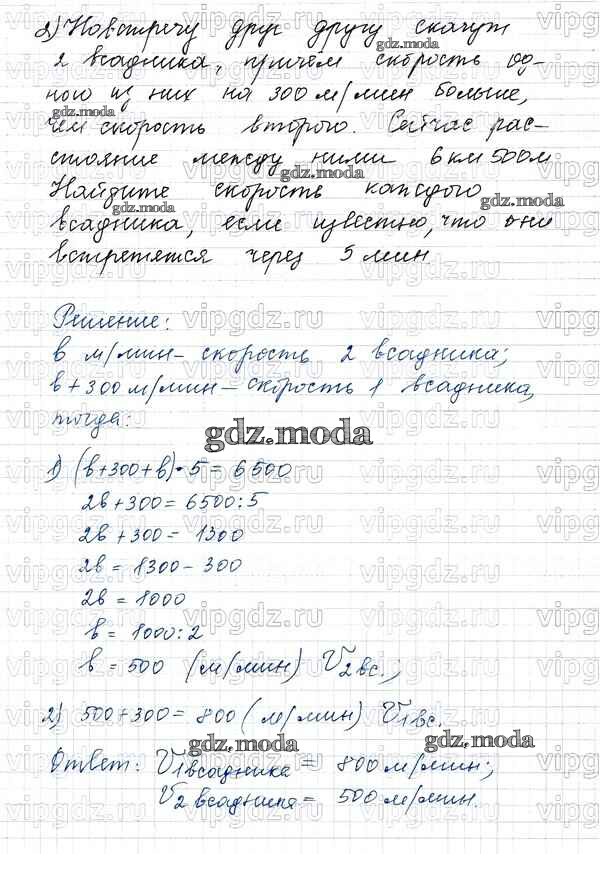 2) Навстречу друг другу скачут
2 всадника, причём скорость од-
ного из них на 300 м/мин больше,
чем скорость второго. Сейчас рас-
стояние между ними 6 км 500 м
Найдите скорость каждого
всадника, если известно, что они
встретятся через 5 мин
Решение:
в м/мин - скорость 2 всадника;
в + 300 м/мин - скорость 1 всадника,
тогда:
gdz.moda
1) (в+300+в)·5 = 6500
2в + 300 = 6500:5
2в + 300 = 1300
2в = 1300 - 300
2в = 1000
в = 1000:2
в = 500 (м/мин) V2вс.;
2) 500+300 = 800 (м/мин) V1вс.
gdz.moda
Ответ: V1всадника = 800 м/мин;
V2 всадника = 500 м/мин.